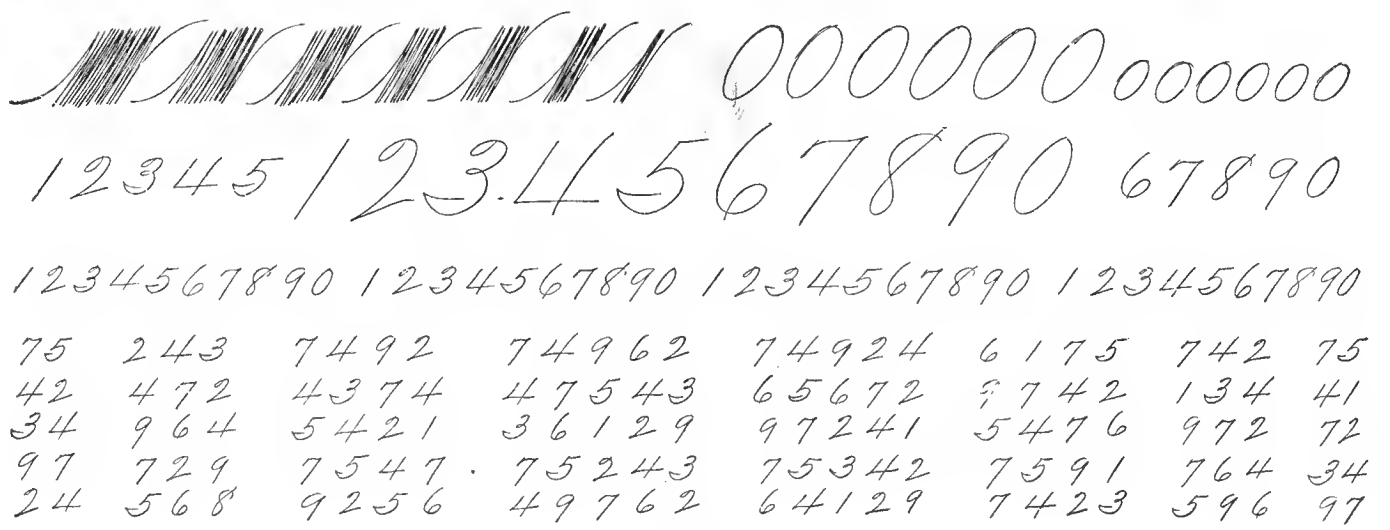 000000 000000
12345 1234567890 67890
1234567890 1234567890 1234567890 1234567890
75 243 7492 74962 74924 6175 742 75
42 472 4374 47543 65672 742 134 41
34 964 5421 36129 97241 5476 972 72
97 729 7547 75243 75342 7591 764 34
24 568 9256 49762 64129 7423 596 97